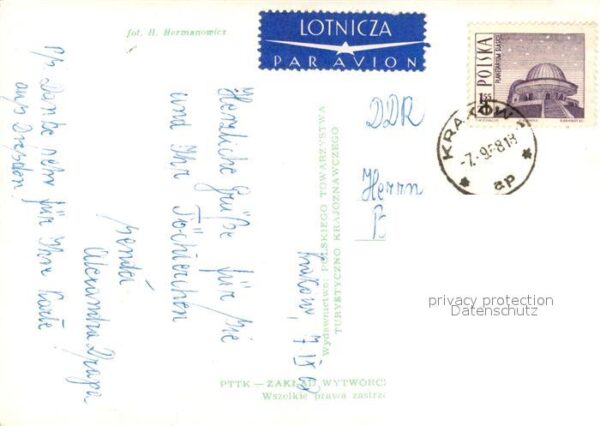 fot. H. Hermanowicz
LOTNICZA
PAR AVION
POLSKA
PLANETARIUM ŚLĄSKIE
KRAKÓW
-7.-9.68.18
ap
DDR
Herrn
B
privacy protection
Datenschutz
Wydawnictwo: POLSKIEGO TOWARZYSTWA
TURYSTYCZNO KRAJOZNAWCZEGO
PTTK — ZAKŁAD WYTWÓRC
Wszelkie prawa zastrz
Kraków, 7 IX 68
Herzliche Grüße für Sie
und Ihr Töchterchen
sendet
Alexandra
P/S Danke sehr für Ihre Karte
aus Dresden.